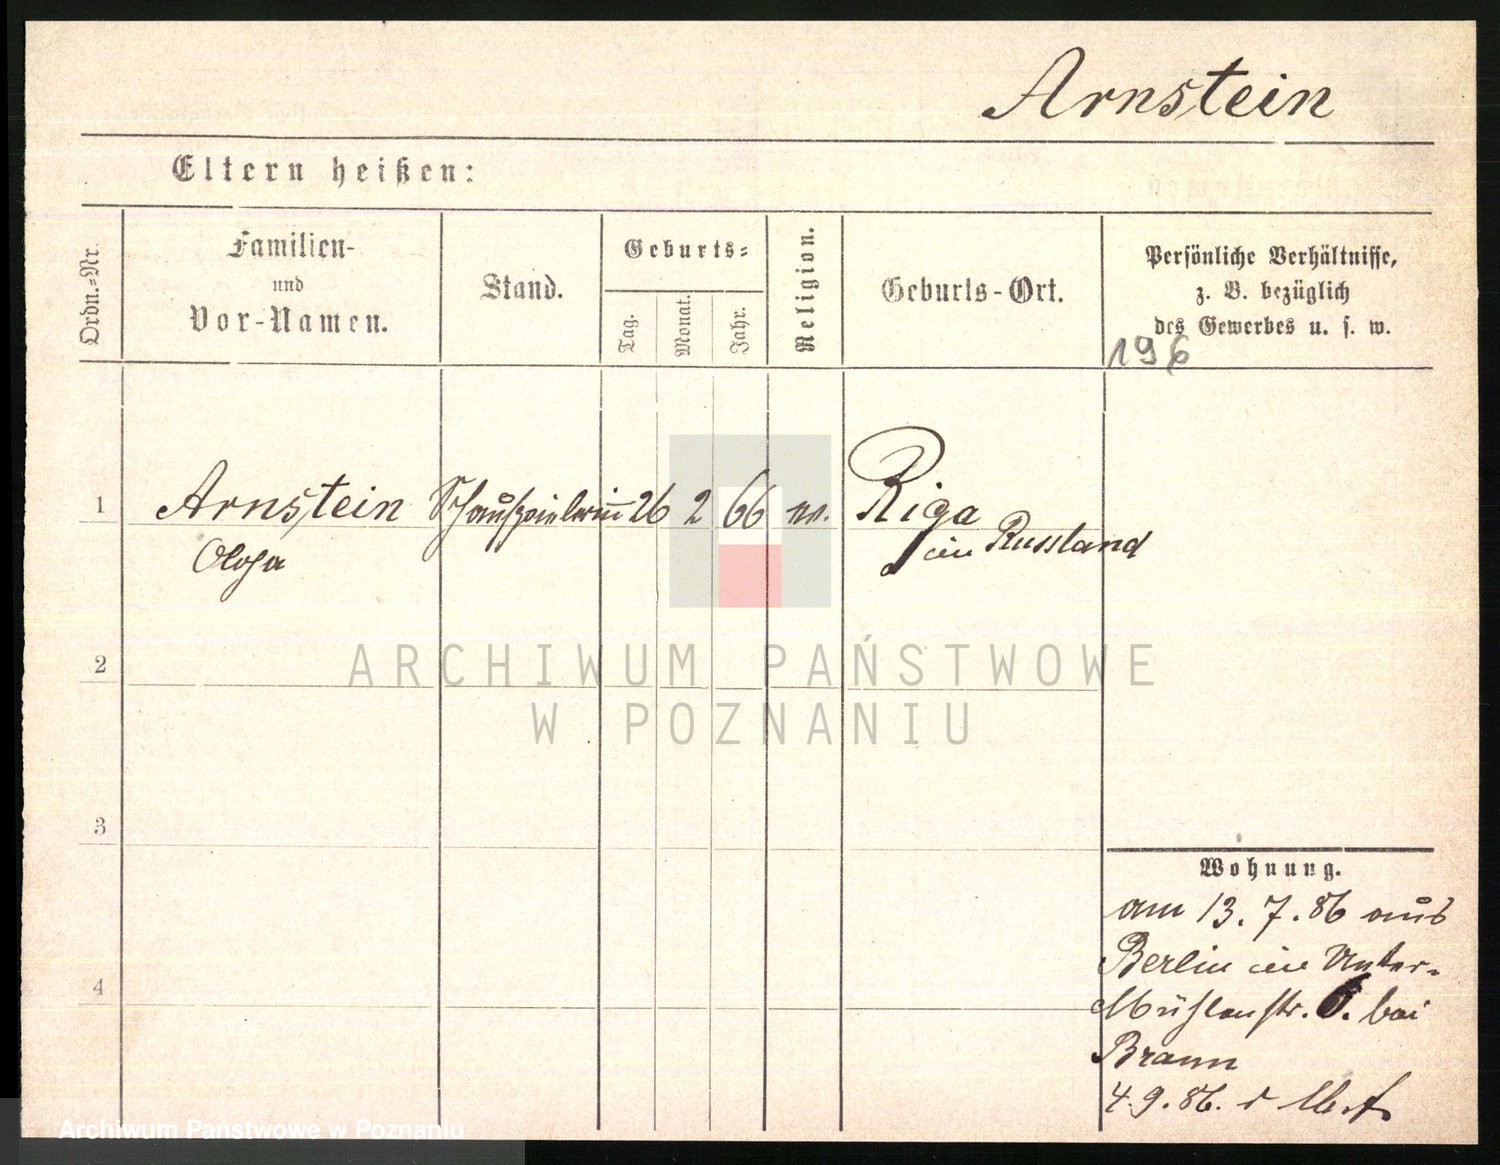 Arnstein
Eltern heißen:
Ordn.=Nr.
Familien-
und
Vor-Namen.
Stand.
Geburts=
Tag.
Monat.
Jahr.
Religion.
Geburts-Ort.
Persönliche Verhältnisse,
z. B. bezüglich
des Gewerbes u. s. w.
196
1 Arnstein Schauspielerin 26 2 66 m. Riga
Olga in Russland
2
3
4
ARCHIWUM PAŃSTWOWE
W POZNANIU
Wohnung.
am 13. 7. 86 aus
Berlin in Unter-
Mühlenstr. 6. bei
Braun
4. 9. 86.
Archiwum Państwowe w Poznaniu